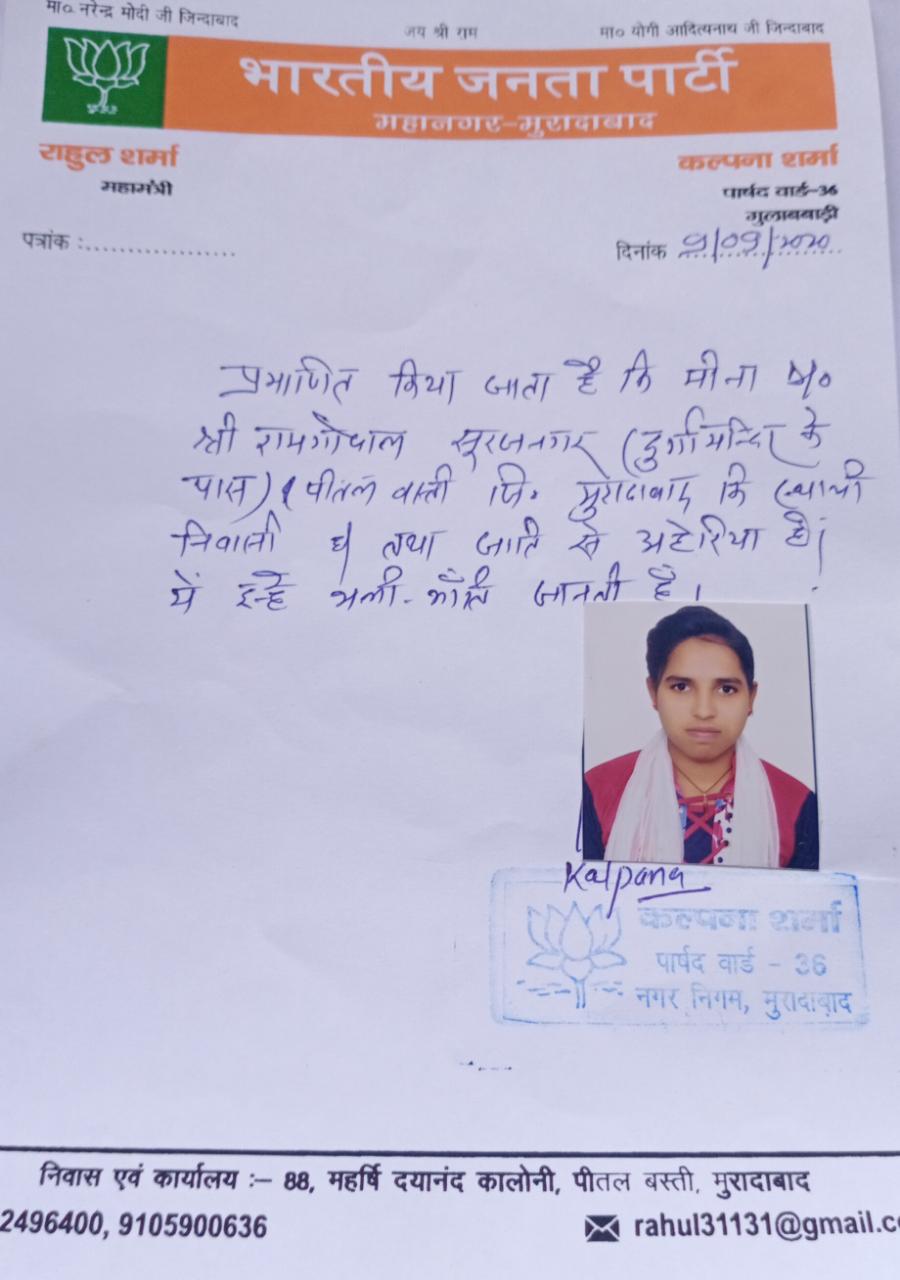 मा० नरेन्द्र मोदी जी जिन्दाबाद
जय श्री राम
मा० योगी आदित्यनाथ जी जिन्दाबाद
भारतीय जनता पार्टी
महानगर-मुरादाबाद
राहुल शर्मा
महामंत्री
कल्पना शर्मा
पार्षद वार्ड-36
गुलाबबाड़ी
पत्रांक :..................
दिनांक 9/09/2020
प्रमाणित किया जाता है कि मीना D/o
श्री रामगोपाल सूरजनगर (दुर्गा मन्दिर के
पास) पीतल वस्ती जि. मुरादाबाद कि स्थायी
निवासी है तथा जाति से अहेरिया है।
में इन्हे भली-भाँति जानती हैं।
Kalpana
कल्पना शर्मा
पार्षद वार्ड - 36
नगर निगम, मुरादाबाद
निवास एवं कार्यालय :– 88, महर्षि दयानंद कालोनी, पीतल बस्ती, मुरादाबाद
2496400, 9105900636
rahul31131@gmail.co